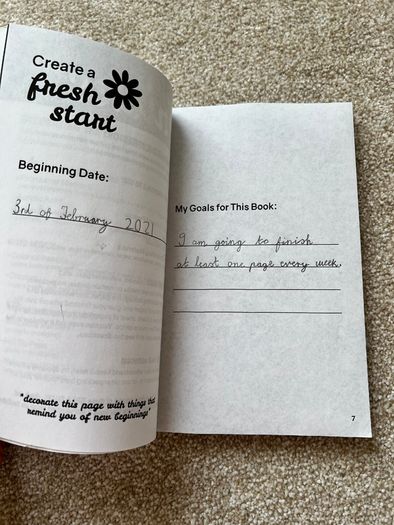 Create a
fresh
start
Beginning Date:
3rd of February 2021
"decorate this page with things that
remind you of new beginnings"
My Goals for This Book:
I am going to finish
at least one page every week.
7